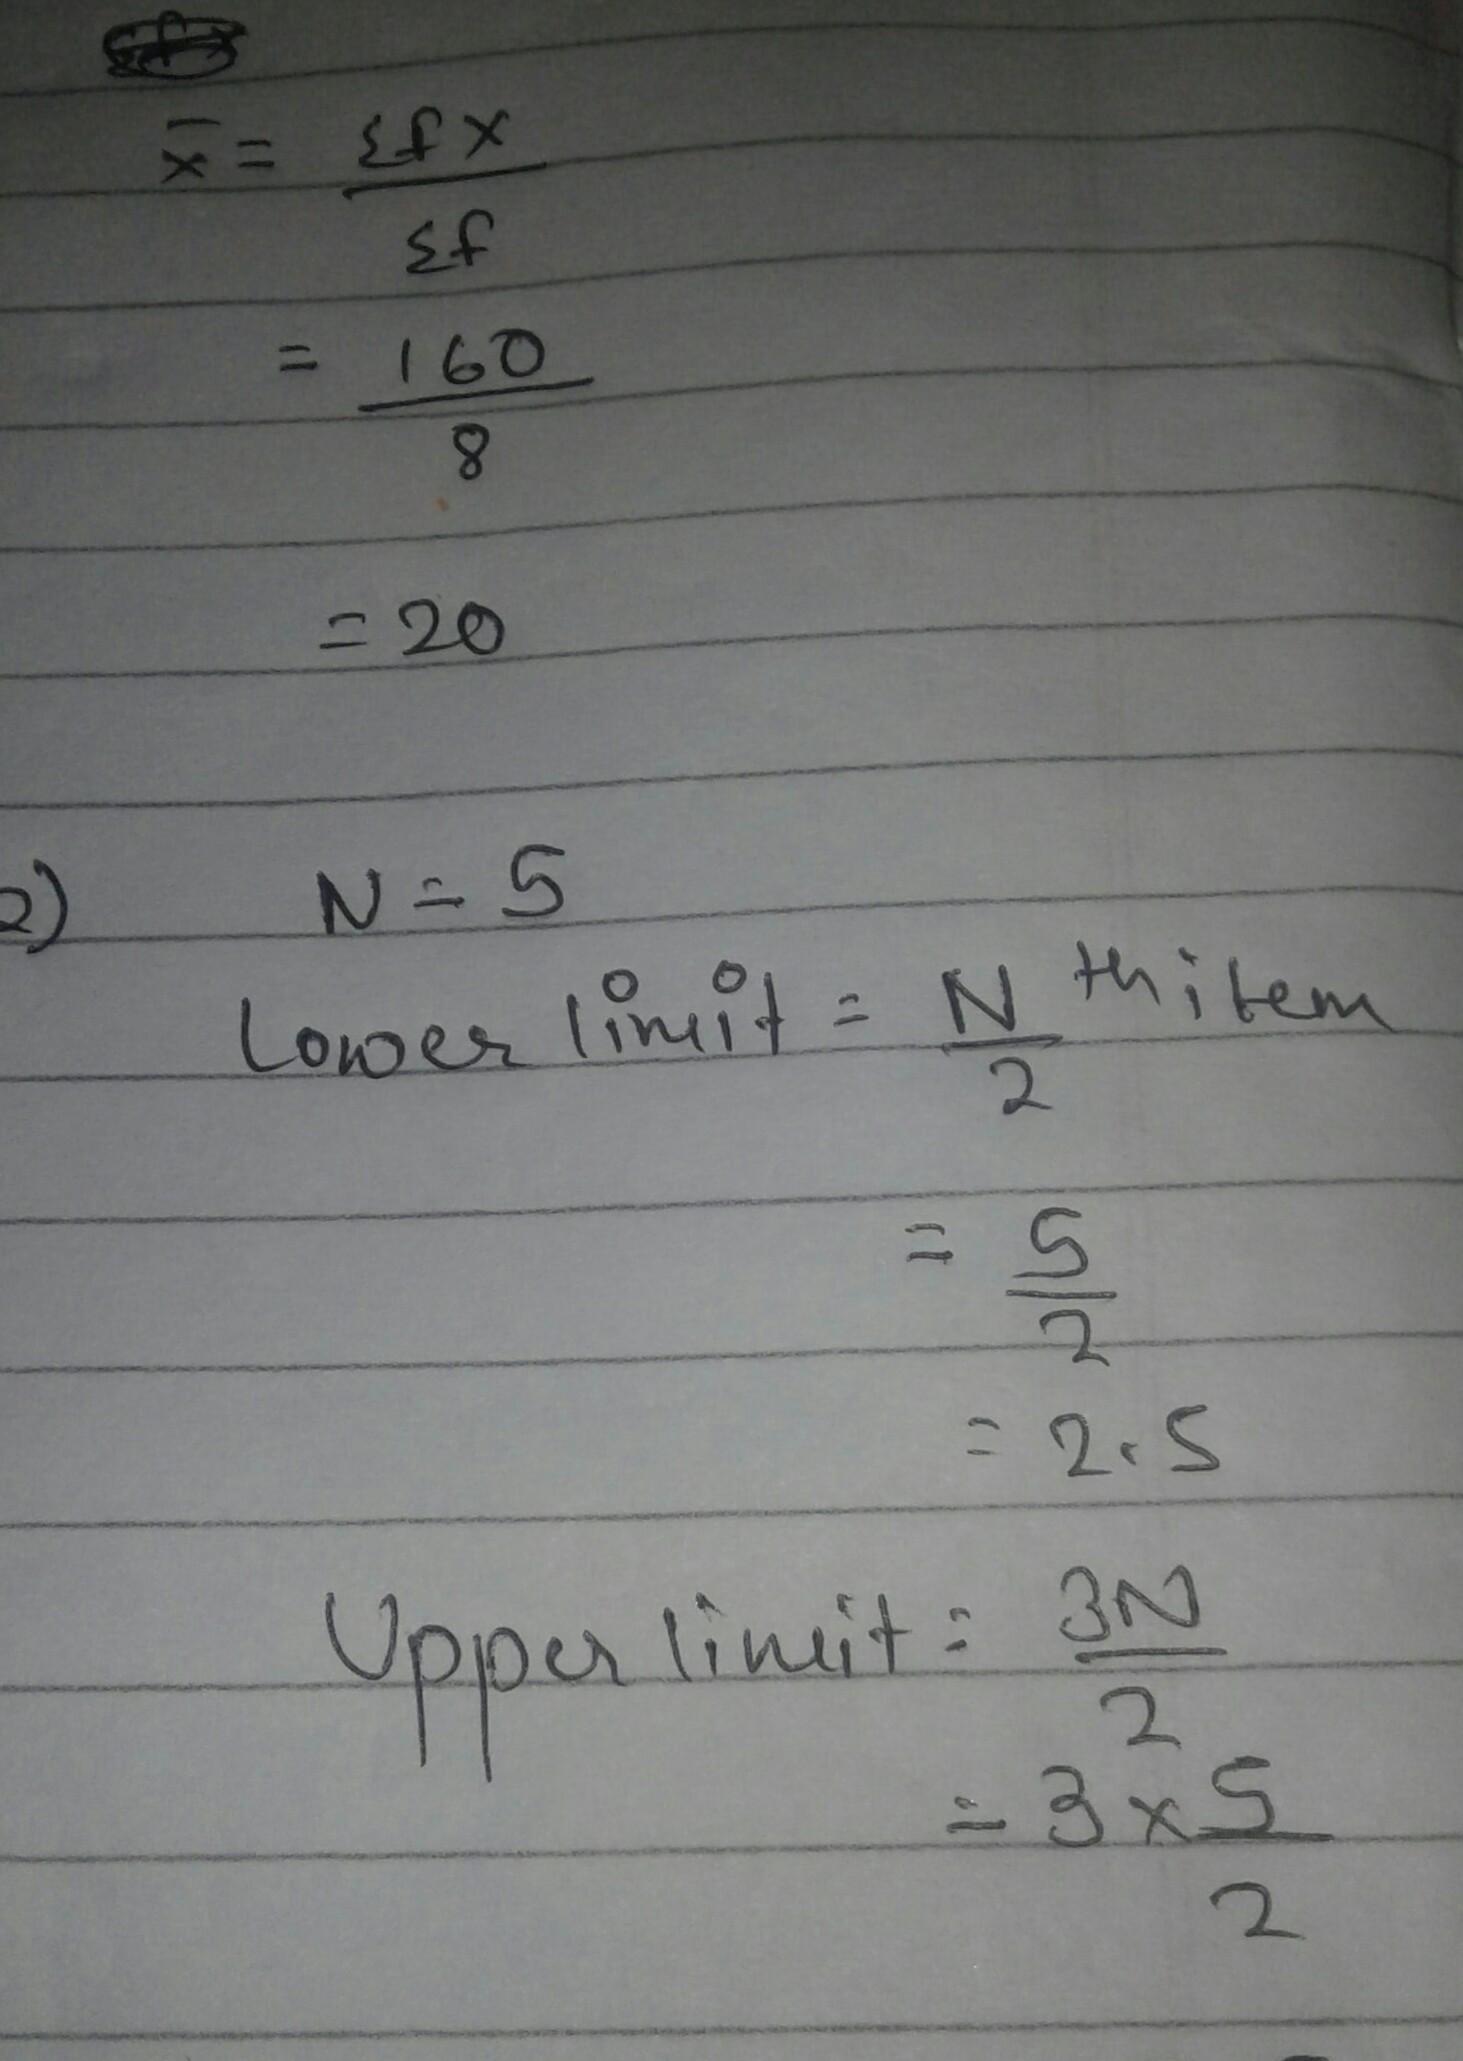 x̄ = Σfx
Σf
= 160
8
= 20
2) N = 5
Lower limit = N th item
2
= 5
2
= 2.5
Upper limit = 3N
2
= 3 × 5
2